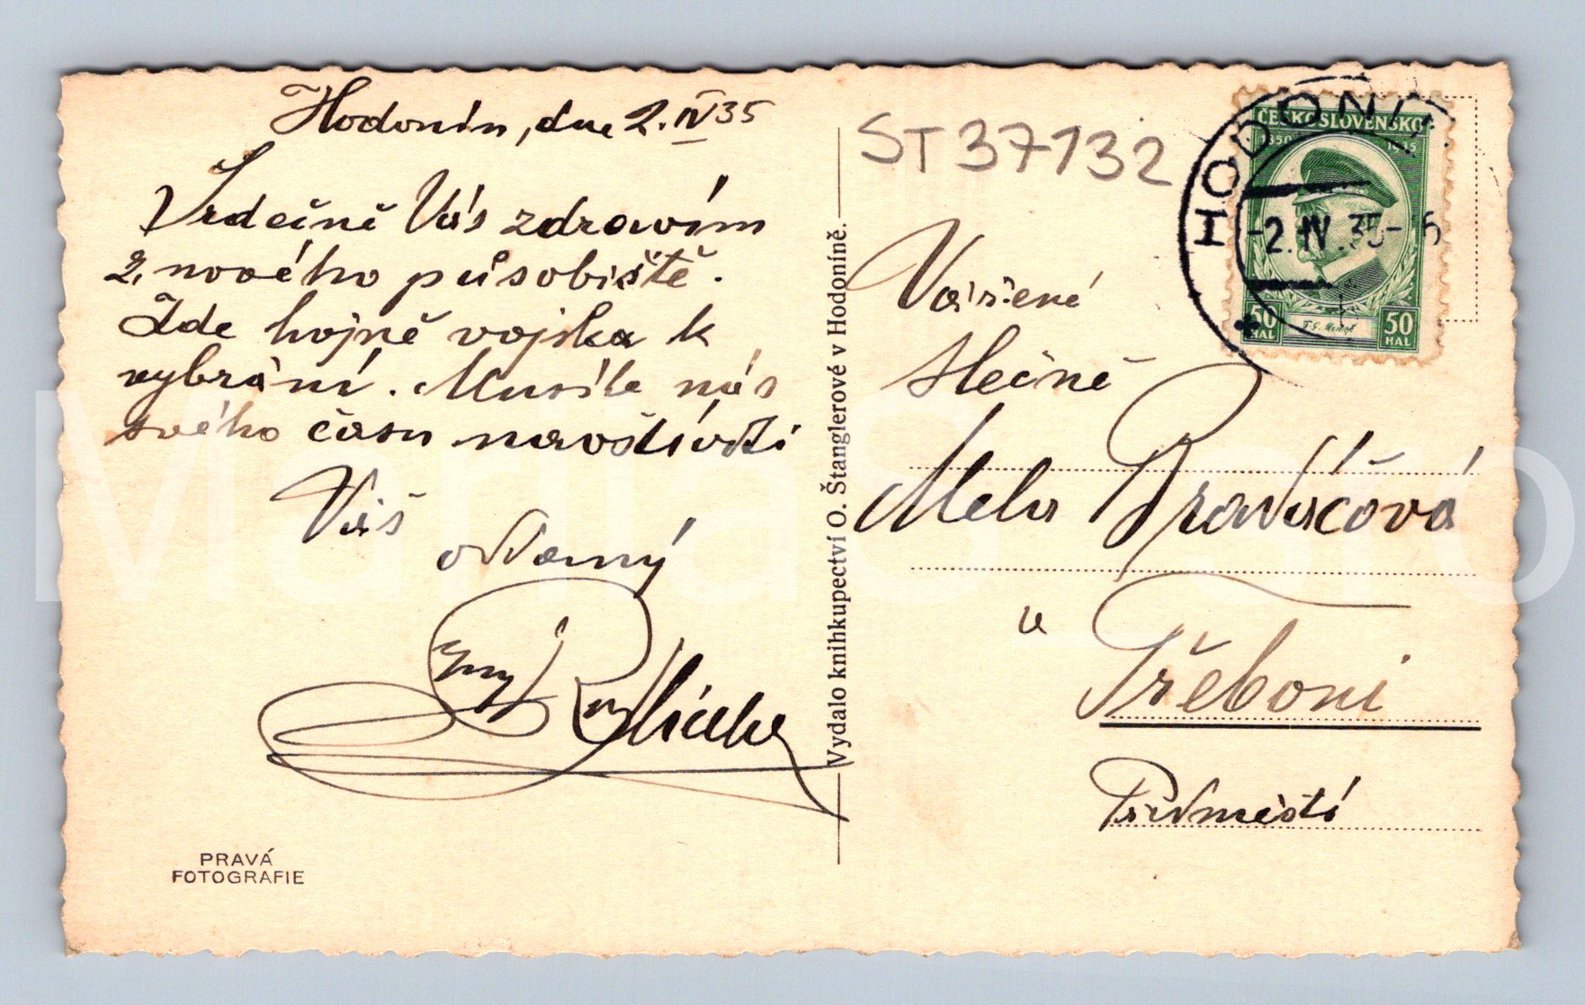 Hodonín, dne 2. IV 35
Srdečně Vás zdravím
z nového působiště.
Zde hojně vojska k
vybrání. Musíte nás
svého času navštíviti
Váš
oddaný
PRAVÁ
FOTOGRAFIE
Vydalo knihkupectví O. Štanglerové v Hodoníně.
ST 37132
HODONÍN
-2.IV.35-
ČESKOSLOVENSKO
1850 1935
50 HAL 50 HAL
Vážené
slečně
Mela
u
Třeboni